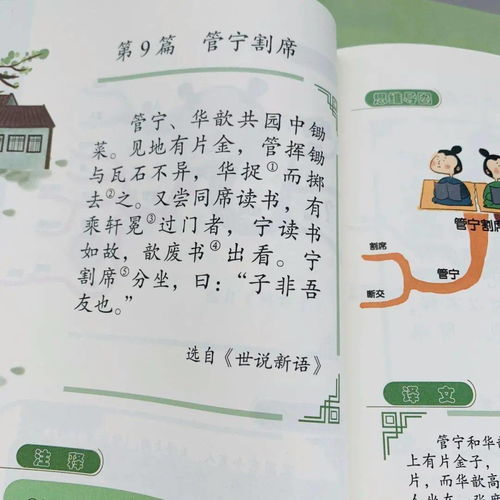 第9篇 管宁割席
管宁、华歆共园中锄
菜。见地有片金，管挥锄
与瓦石不异，华捉①而掷
去②之。又尝同席读书，有
乘轩冕③过门者，宁读书
如故，歆废书④出看。宁
割席⑤分坐，曰：“子非吾
友也。”
选自《世说新语》
注释
思维导图
管宁割席
割席
管宁
断交
译文
管宁和华歆
上有片金子，
片，而华歆高